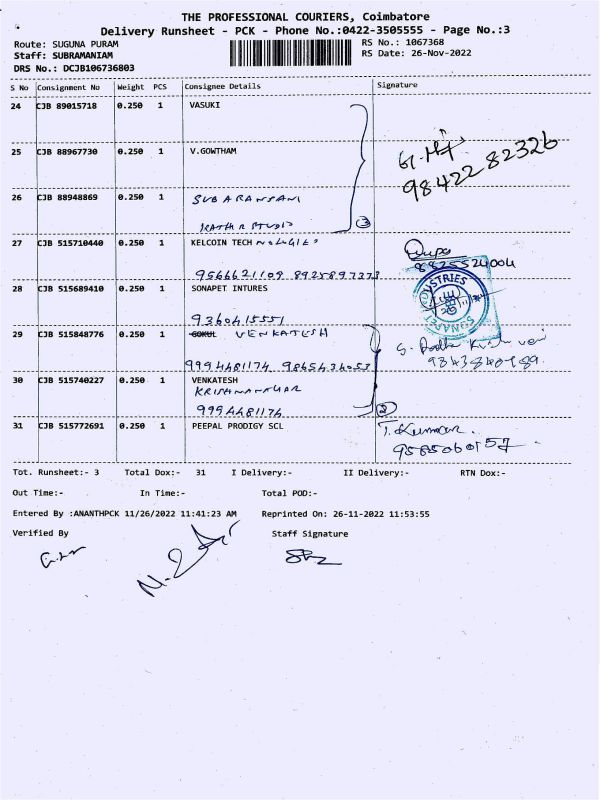 THE PROFESSIONAL COURIERS, Coimbatore
Delivery Runsheet - PCK - Phone No.:0422-3505555 - Page No.:3
Route: SUGUNA PURAM
RS No.: 1067368
Staff: SUBRAMANIAM
RS Date: 26-Nov-2022
DRS No.: DCJB106736803
S No Consignment No Weight PCS Consignee Details Signature
24 CJB 89015718 0.250 1 VASUKI
25 CJB 88967730 0.250 1 V.GOWTHAM
98422 82326
26 CJB 88948869 0.250 1
3
27 CJB 515710440 0.250 1 KELCOIN TECHNOLOGIES
9566621109 8925897373
8825524004
28 CJB 515689410 0.250 1 SONAPET INTURES
9360415551
29 CJB 515848776 0.250 1 GOKUL VENKATESH
9994481174
30 CJB 515740227 0.250 1 VENKATESH
KRISHNANAGAR
9994481174 2
31 CJB 515772691 0.250 1 PEEPAL PRODIGY SCL
T. Kumaran
9585060157
Tot. Runsheet:- 3 Total Dox:- 31 I Delivery:- II Delivery:- RTN Dox:-
Out Time:- In Time:- Total POD:-
Entered By :ANANTHPCK 11/26/2022 11:41:23 AM Reprinted On: 26-11-2022 11:53:55
Verified By Staff Signature